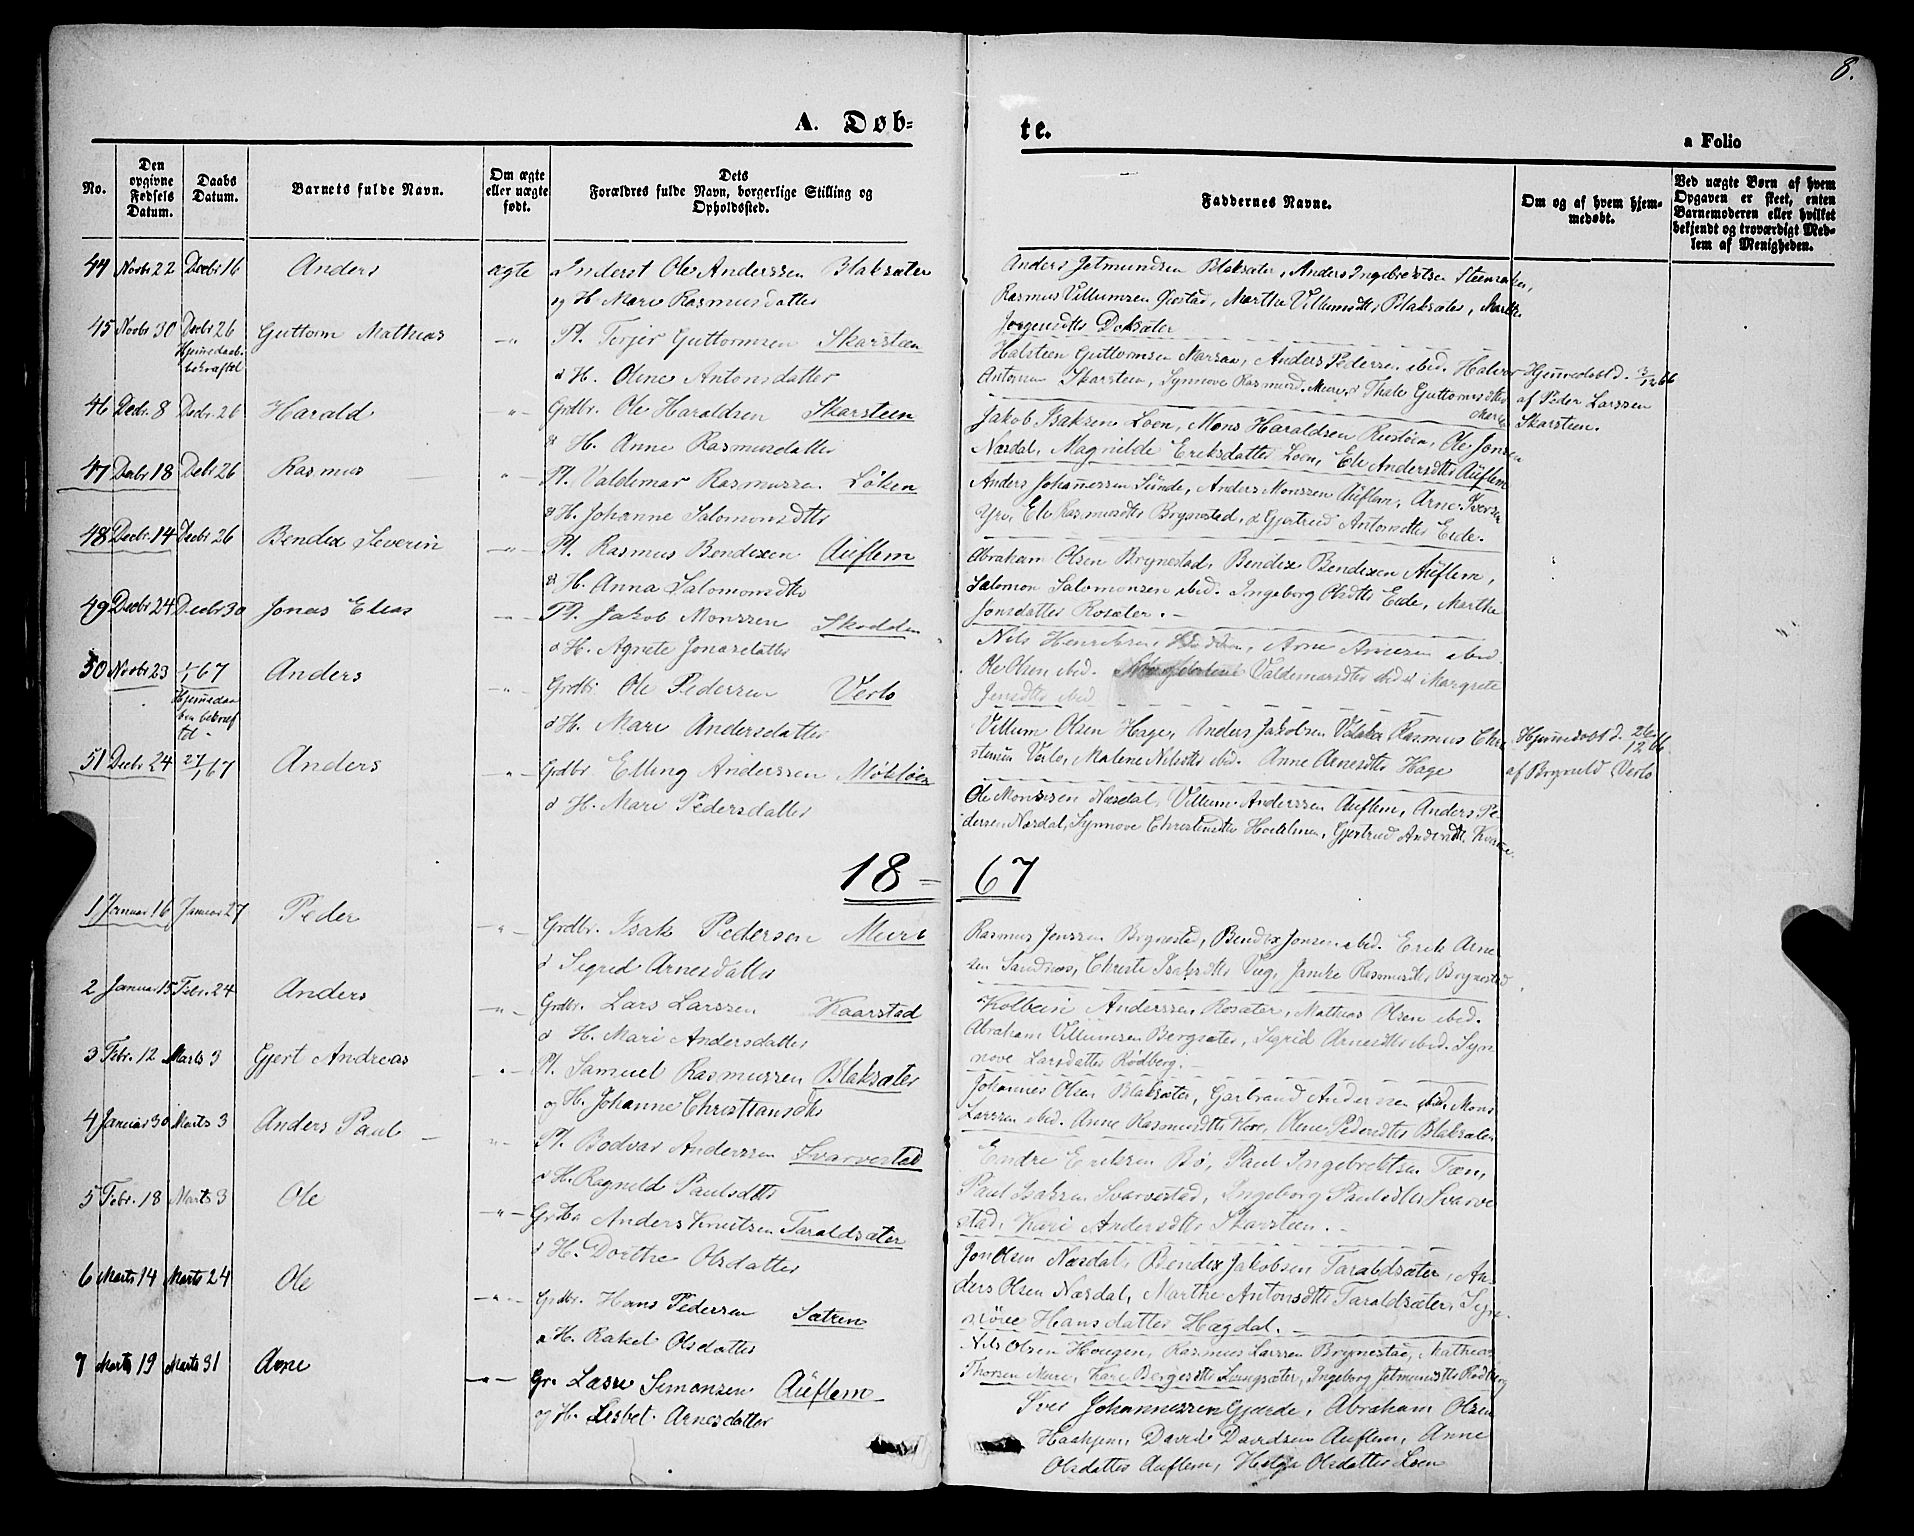 8.
A. Døb= te. a Folio
No.
Den opgivne Fødsels Datum.
Daabs Datum.
Barnets fulde Navn.
Om ægte eller uægte født.
Dets Forældres fulde Navn, borgerlige Stilling og Opholdssted.
Faddernes Navne.
Om og af hvem hjemmedøbt.
Ved uægte Børn af hvem Opgaven er skeet, enten Barnemoderen eller hvilket bekjendt og troværdigt Medlem af Menigheden.
44 Novbr 22 Decbr 16 Anders ægte Inderst Ole Anderssen Blaksæter
og H. Mari Rasmusdatter
Anders Jetmundsen Blaksæter, Anders Ingebretsen
Rasmus Villumsen, Marthe Villumsdtr Blaksæter, Marthe
Jørgensdtr
45 Novbr 30 Decbr 26 Guttorm Mathias -"- Pl. Terjer Guttormsen Skarsteen
Hjemedaab bekræftet
& H. Oline Antonsdatter
Halsteen Guttormsen, Anders Pedersen ibid.
Skarsteen, Synnove Rasmusd. Muri, & Thale Guttormsdtr
Hjemedøbt d. 3/12 66
af Peder Larssen
Skarsteen.
46 Decbr. 8 Decbr. 26 Harald -"- Grdbr. Ole Haraldsen Skarsteen
& H. Anne Rasmusdatter
Jakob Isaksen Loen, Mons Haraldsen, Ole Jonsen
Næsdal, Magnilde Eriksdatter Loen, Eli Andersdtr Auflem
47 Decbr 18 Decbr 26 Rasmus -"- Pl. Valdemar Rasmussen Løken
& H. Johanne Salomonsdtr
Anders Johannessen Sunde, Anders Monssen Auflem, Arne Iversen
Yri, Eli Rasmusdtr Brynestad, & Gjertrud Antonsdtr Eide.
48 Decbr 14 Decbr 26 Bendix Severin -"- Pl. Rasmus Bendixen Auflem
& H. Anna Salomonsdtr
Abraham Olsen Brynestad, Bendix Bendixen Auflem,
Salomon Salomonsen ibid. Ingeborg Olsdtr Eide, Marthe
Jonsdatter Rosæter.
49 Decbr 24 Decbr 30 Jonas Elias -"- Pl. Jakob Monssen Skodden
& H. Agnete Jonasdatter
Nils Henriksen, Arne Arnesen ibid.
Ole Olsen ibid. Valdemarsdtr ibid & Margrete
Jensdtr ibid
50 Novbr 23 1/1 67 Anders -"- Grdbr. Ole Pedersen Verlo
Hjemedaaben bekræftet
& H. Mari Andersdatter
Villum Olsen Hage, Anders Jakobsen, Rasmus Chri
stensen Verlo, Malene Nilsdtr ibid. Anne Arnesdtr Hage
Hjemedøbt d. 26/12 66
af Brynild Verlo
51 Decbr 24 27/1 67 Anders -"- Grdbr Elling Anderssen Mokløer
& H. Mari Pedersdatter
Ole Monssen Næsdal, Villum Anderssen Auflem, Anders Pe
dersen Næsdal, Synnove Christensdtr, Gjertrud Andersdtr.
18=67
1 Januar 16 Januar 27 Peder -"- Grdbr. Isak Pedersen Muri
& Sigrid Arnesdatter
Rasmus Jenssen Brynestad, Bendix Jonsen ibid. Erik Arne
sen Sandnæs, Christi Isaksdtr, Janike Rasmusdtr, Brynestad
2 Januar 15 Febr. 24 Anders -"- Grdbr. Lars Larssen Kaarstad
& H. Mari Andersdatter
Kolbein Anderssen Rosæter, Mathias Olsen ibid.
Abraham Villumsen Bergsæter, Sigrid Arnesdtr ibid. Syn
nove Larsdatter Rødberg.
3 Febr. 12 Marts 3 Gjert Andreas -"- Pl. Samuel Rasmussen Blaksæter
og H. Johanne Christiansdtr
Johannes Olsen Blaksæter, Anderssen ibid, Mons
Larssen ibid. Anne Rasmusdtr, Oline Pedersdtr Blaksæter
4 Januar 30 Marts 3 Anders Paul -"- Pl. Bodvar Anderssen Svarvestad
& H. Ragnild Paulsdtr
Endre Eriksen Bø, Paul Ingebretsen
Paul Isaksen Svarvestad, Ingeborg Paulsdtr Svarve
stad, Kari Andersdtr Skarsteen.
5 Febr. 18 Marts 3 Ole -"- Grdbr Anders Knutsen Taraldsæter
& H. Dorthe Olsdatter
Jon Olsen Næsdal, Bendix Jakobsen Taraldsæter, An
ders Olsen Næsdal, Marthe Antonsdtr Taraldsæter, Syn
Hansdatter Hægdal.
6 Marts 14 Marts 24 Ole -"- Grdbr. Hans Pedersen Sætren
& H. Rakel Olsdatter
Nils Olsen Hougen, Rasmus Larssen Brynestad, Mathias
Thorsen Muri, Kari Bergesdtr, Ingeborg Jetmundsdtr Rødberg
7 Marts 19 Marts 31 Arne -"- Gr. Lasse Simonsen Auflem
og H. Lisbet Arnesdatter
Iver Johannessen Gjerde, Abraham Olsen
Haahjem, David Davidsen Auflem, Anne
Olsdatter Auflem, Helga Olsdatter Loen